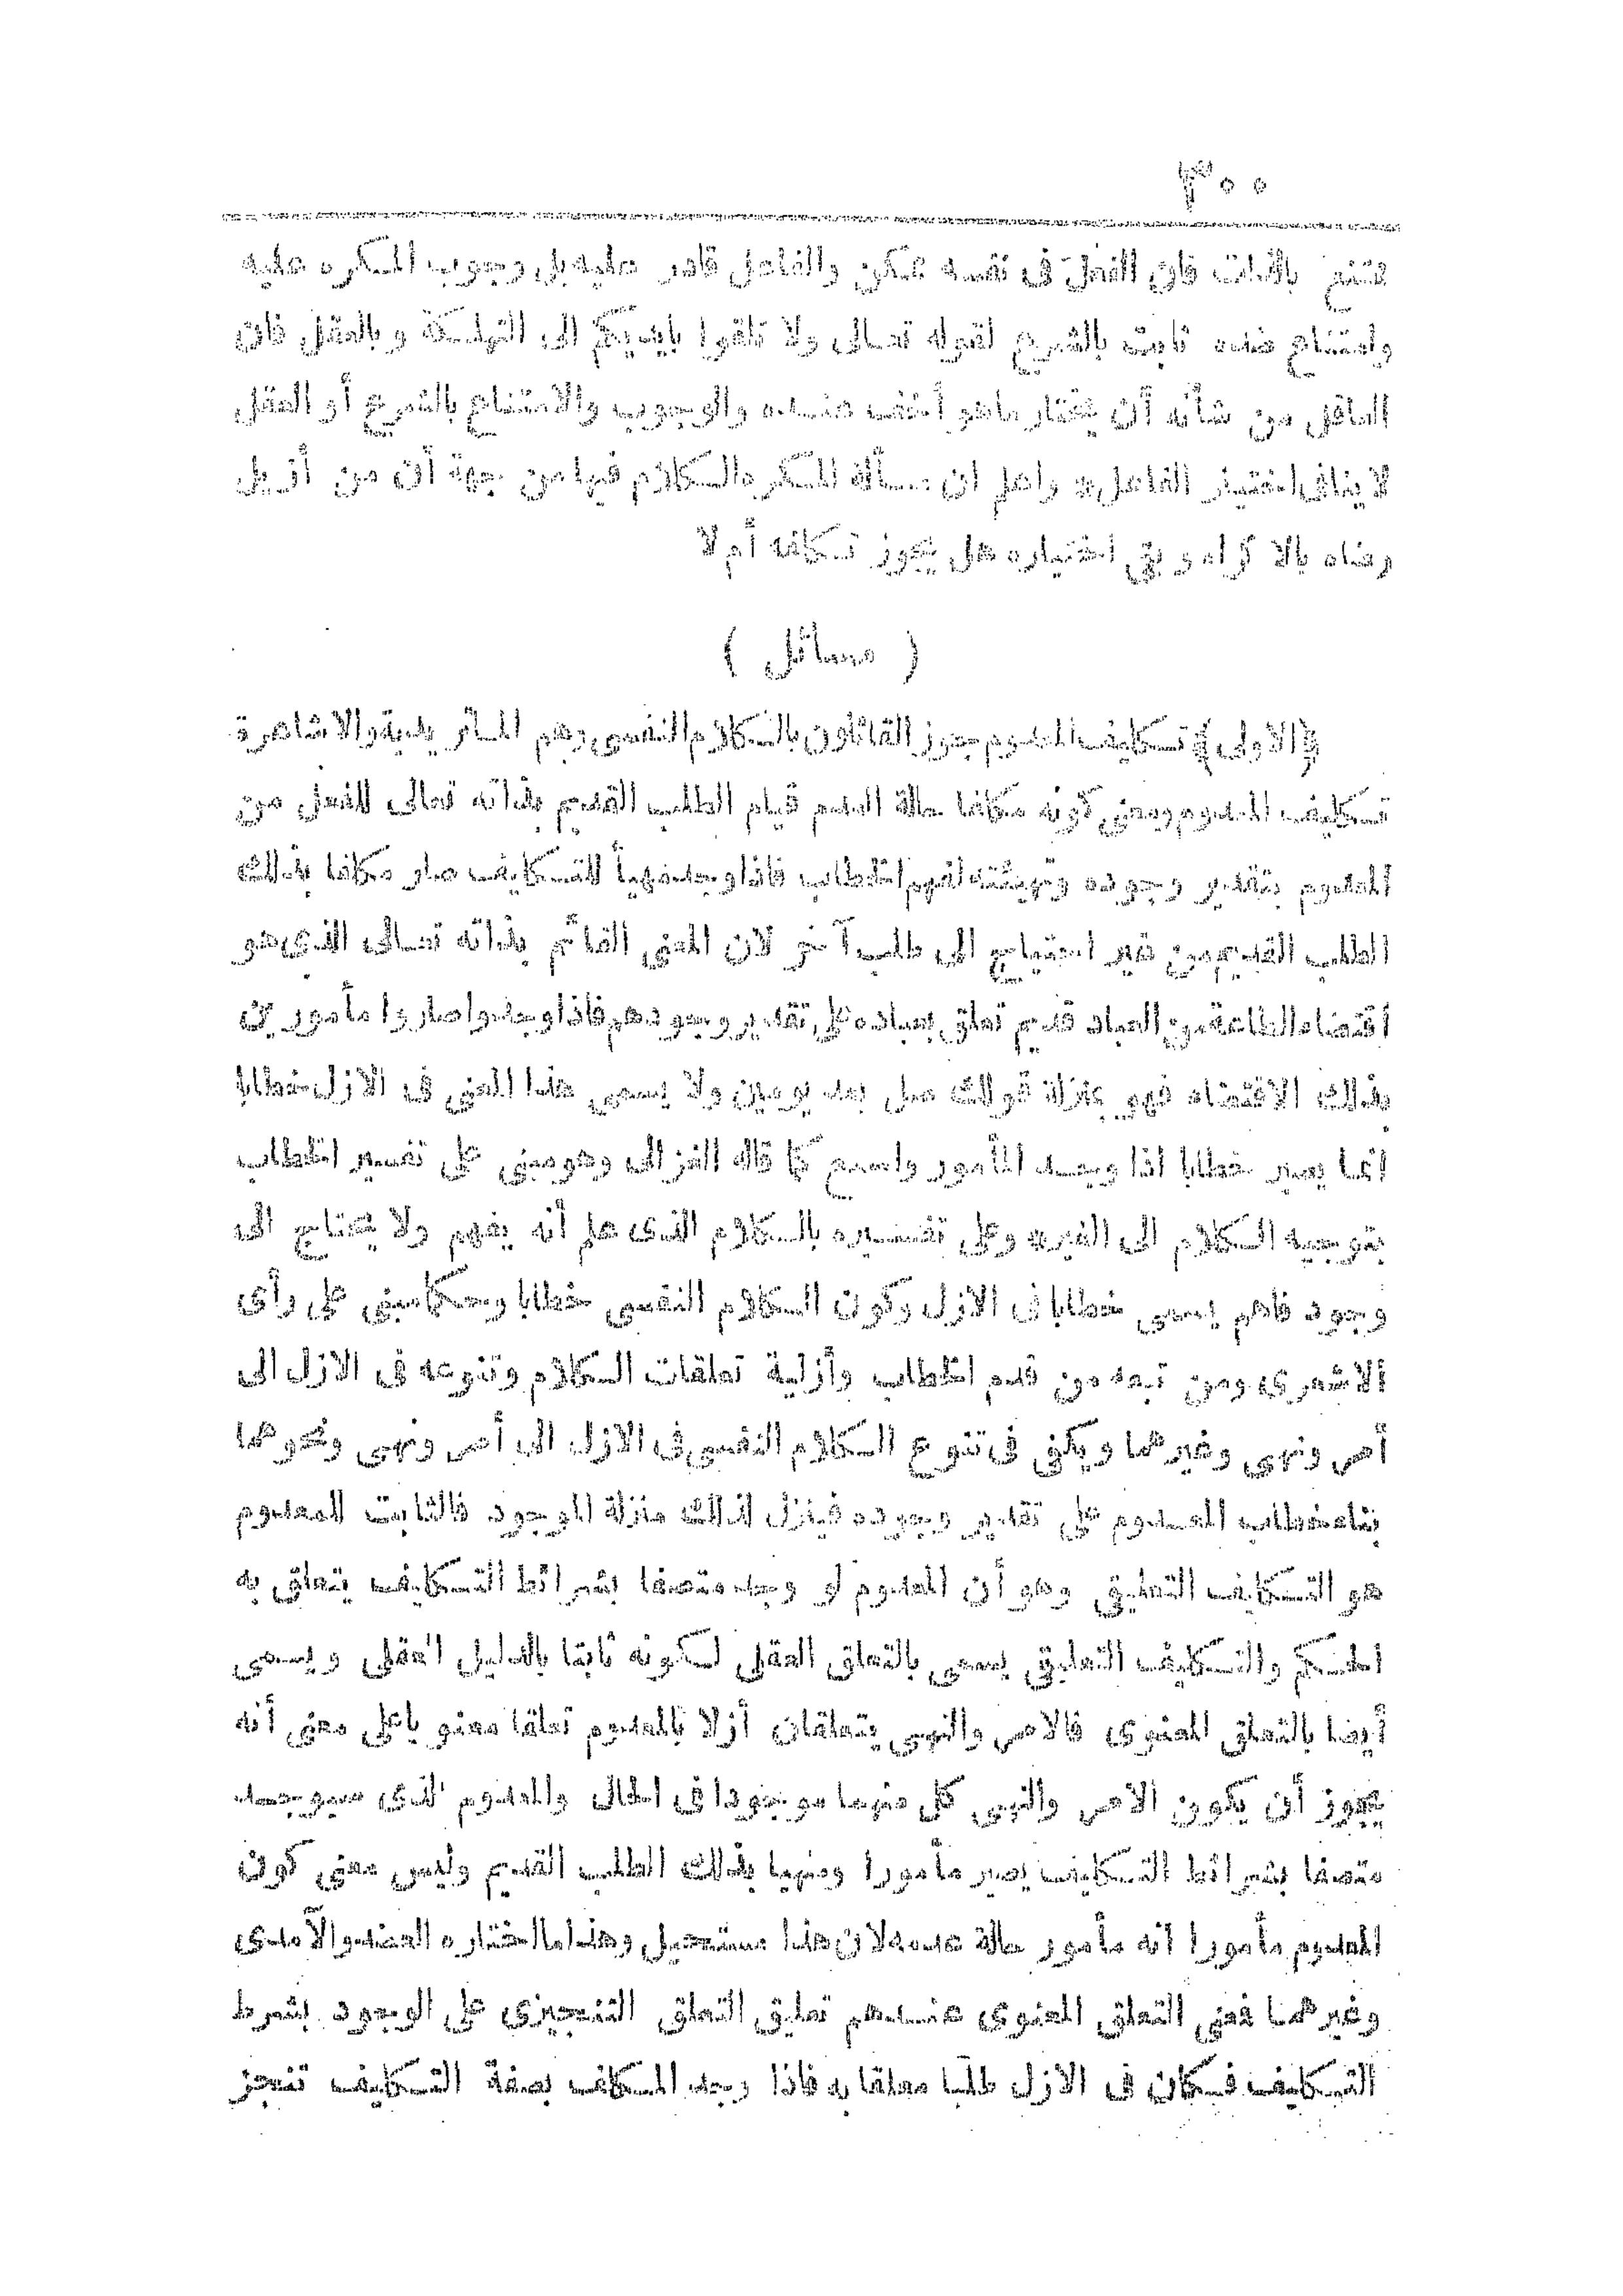 ٣٠٠
ممتنع بالذات فان الفعل فى نفسه ممكن والفاعل قادر عليه بل وجوب المكره عليه
وامتناع ضده ثابت بالشرع لقوله تعالى ولا تلقوا بايديكم الى التهلكة وبالعقل فان
العاقل من شأنه أن يختار ما هو أخف عنده والوجوب والامتناع بالشرع أو العقل
لا ينافى اختيار الفاعل * واعلم ان مسألة المكره الكلام فيها من جهة أن من أزيل
رضاه بالاكراه وبقى اختياره هل يجوز تكلفه أم لا
( مسائل )
﴿الاولى﴾ تكليف المعدوم جوز القائلون بالكلام النفسى وهم الماتريدية والاشاعرة
تكليف المعدوم ومعنى كونه مكلفا حالة العدم قيام الطلب القديم بذاته تعالى للفعل من
المعدوم بتقدير وجوده وتهيئته لفهم الخطاب فاذا وجد مهيأ للتكليف صار مكلفا بذلك
الطلب القديم من غير احتياج الى طلب آخر لان المعنى القائم بذاته تعالى الذى هو
اقتضاء الطاعة من العباد قديم تعلق بعباده على تقدير وجودهم فاذا وجدوا صاروا مأمورين
بذلك الاقتضاء فهو بمنزلة قولك صل بعد يومين ولا يسمى هذا المعنى فى الازل خطابا
انما يصير خطابا اذا وجد المأمور واسمع كما قاله الغزالى وهو مبنى على تفسير الخطاب
بتوجيه الكلام الى الغير * وعلى تفسيره بالكلام الذى علم أنه يفهم ولا يحتاج الى
وجود فاهم يسمى خطابا فى الازل وكون الكلام النفسى خطابا وحكما مبنى على رأى
الاشعرى ومن تبعه من قدم الخطاب وأزلية تعلقات الكلام وتنوعه فى الازل الى
أمر ونهى وغيرهما ويكفى فى تنوع الكلام النفسى فى الازل الى أمر ونهى ونحوهما
بناء خطاب المعدوم على تقدير وجوده فينزل لذلك منزلة الموجود فالثابت للمعدوم
هو التكليف التعليقى وهو أن المعدوم لو وجد متصفا بشرائط التكليف يتعلق به
الحكم والتكليف التعليقى يسمى بالتعلق العقلى لكونه ثابتا بالدليل العقلى ويسمى
أيضا بالتعلق المعنوى فالامر والنهى يتعلقان أزلا بالمعدوم تعلقا معنويا على معنى أنه
يجوز أن يكون الامر والنهى كل منهما موجودا فى الحال والمعدوم الذى سيوجد
متصفا بشرائط التكليف يصير مأمورا ومنهيا بذلك الطلب القديم وليس معنى كون
المعدوم مأمورا انه مأمور حالة عدمه لان هذا مستحيل وهذا ما اختاره العضد والآمدى
وغيرهما فمعنى التعلق المعنوى عندهم تعليق التعلق التنجيزى على الوجود بشرط
التكليف فكان فى الازل طلبا معلقا به فاذا وجد المكلف بصفة التكليف تنجز